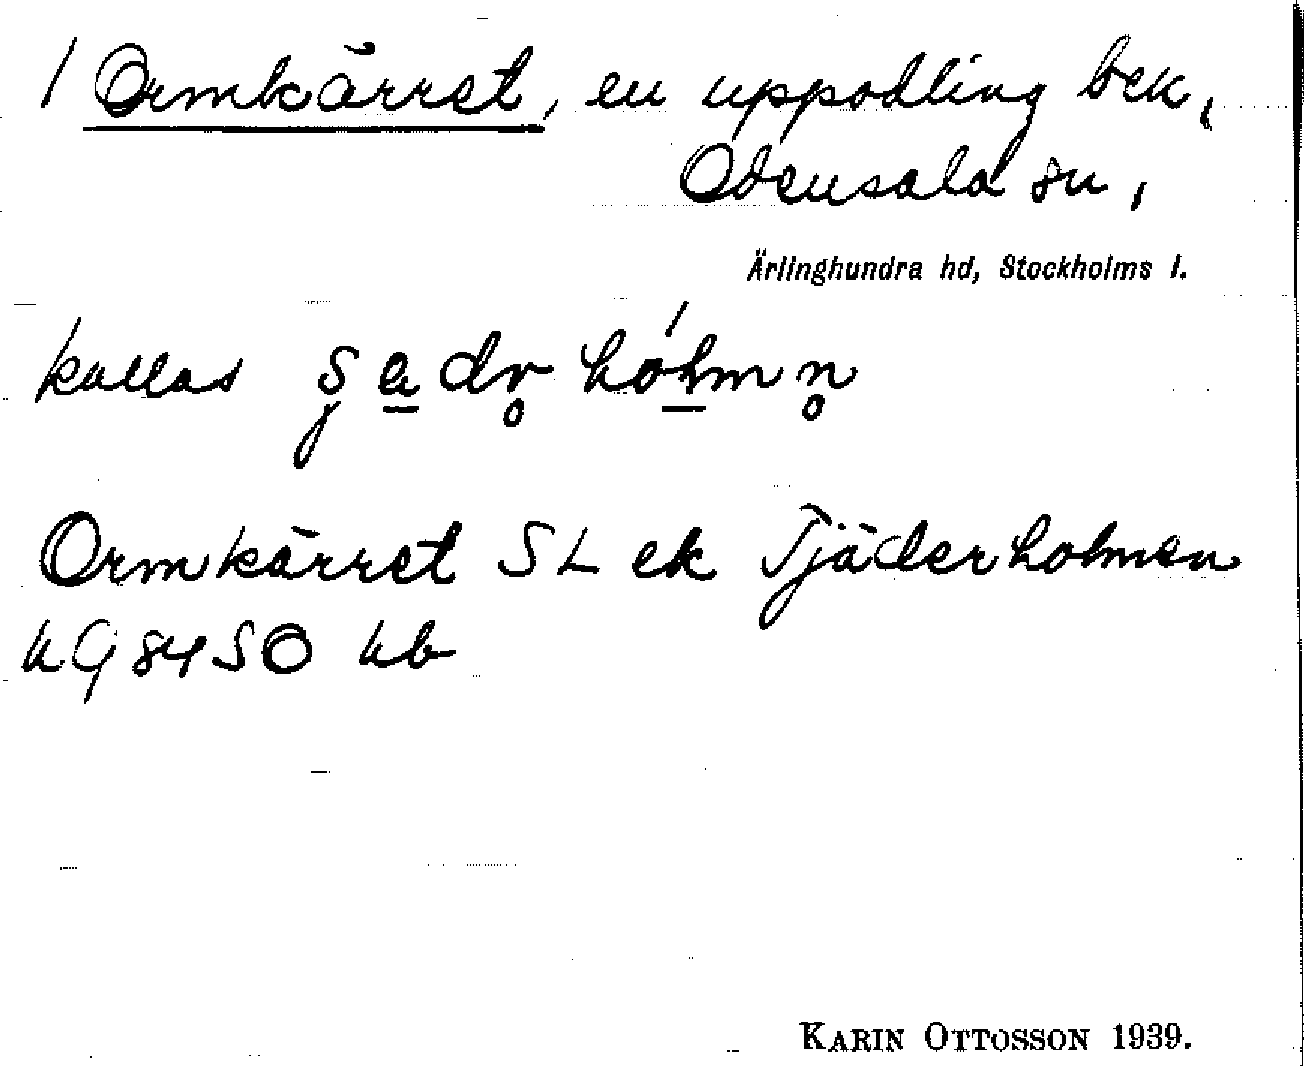 1 Ormkärret, en uppodling bek,
Odensala sn,
Ärlinghundra hd, Stockholms l.
kallas
Ormkärret SL ek Tjäderholmen
hG 84 SO hb
KARIN OTTOSSON 1939.